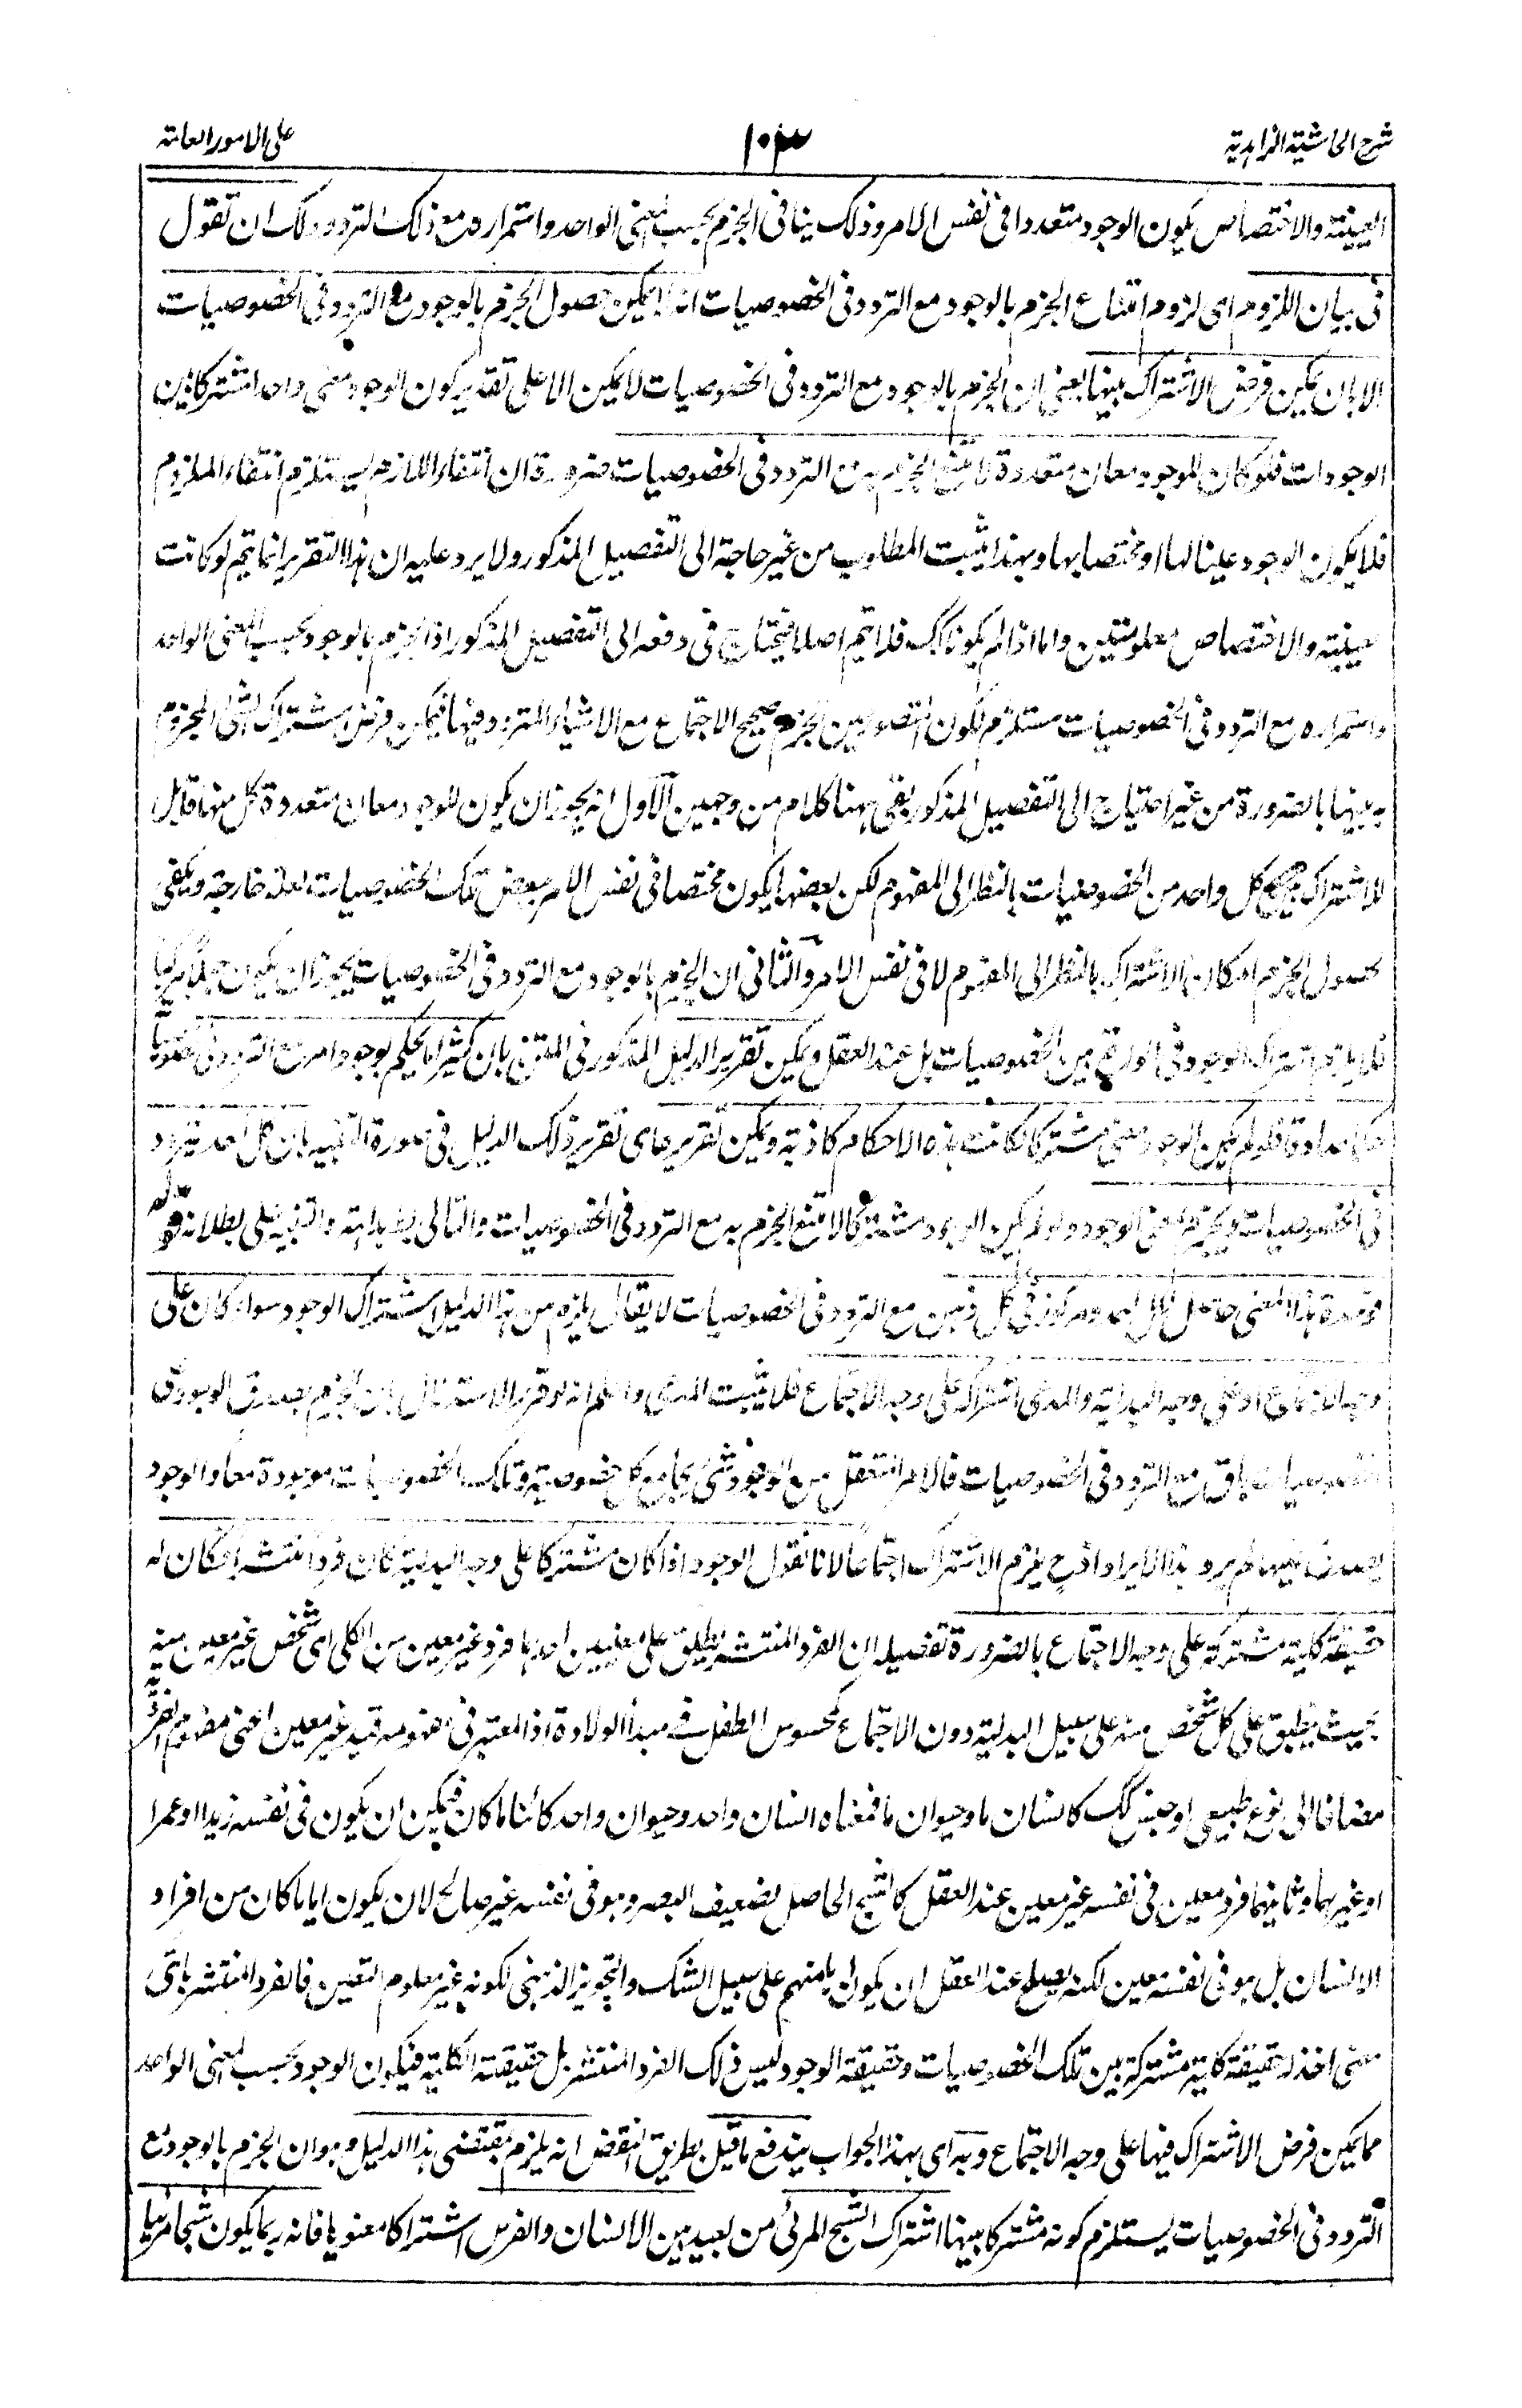 شرح الحاشية الزاهدية
١٠٣
على الامور العامة
العينية والاختصاص يكون الوجود متعددا فى نفس الامر وذلك ينافى الجزم بحسب المعنى الواحد واستمراره مع ذلك التردد ولك ان تقول
فى بيان اللزوم اى لزوم امتناع الجزم بالوجود مع التردد فى الخصوصيات انه لا يمكن حصول الجزم بالوجود مع التردد فى الخصوصيات
الا بان يمكن فرض الاشتراك بينها يعنى ان الجزم بالوجود مع التردد فى الخصوصيات لا يمكن الا على تقدير كون الوجود معنى واحدا مشتركا بين
الوجودات فلو كان للوجود معان متعددة لامتنع الجزم به مع التردد فى الخصوصيات ضرورة ان انتفاء اللازم يستلزم انتفاء الملزوم
فلا يكون الوجود عينا لها او مختصا بها وبهذا يثبت المطلوب من غير حاجة الى التفصيل المذكور ولا يرد عليه ان هذا التقرير انما يتم لو كانت
العينية والاختصاص معلومتين واما اذا لم يكونا كك فلا يتم اصلا فيحتاج فى دفعه الى التفصيل المذكور اذ الجزم بالوجود بحسب المعنى الواحد
واستمراره مع التردد فى الخصوصيات مستلزم لكون المتصور بين الجزم صحيح الاجتماع مع الاشياء المتردد فيها فيمكن فرض اشتراك الشئ المجزوم
به بينها بالضرورة من غير احتياج الى التفصيل المذكور بقى ههنا كلام من وجهين الاول انه يجوز ان يكون للوجود معان متعددة كل منها قابل
للاشتراك بين كل واحد من الخصوصيات بالنظر الى المفهوم لكن بعضها يكون مختصا فى نفس الامر ببعض تلك الخصوصيات لعلة خارجة ويكفى
لحصول الجزم امكان الاشتراك بالنظر الى المفهوم لا فى نفس الامر والثانى ان الجزم بالوجود مع التردد فى الخصوصيات يجوز ان يكون جهلا مركبا
فلا يلزم اشتراك الوجود فى الواقع بين الخصوصيات بل عند العقل ويمكن تقرير الدليل المذكور فى المتن بان كثيرا ما يحكم بوجود امر مع التردد فى
حكما صادقا فلو لم يكن الوجود معنى مشتركا لكانت هذه الاحكام كاذبة ويمكن تقريرها اى تقرير ذلك الدليل فى صورة التنبيه بان كل احد يتردد
فى الخصوصيات ويجزم بمعنى الوجود ولو لم يكن الوجود مشتركا لامتنع الجزم به مع التردد فى الخصوصيات والتالى بط بداهة والتنبيه على بطلانه قوله
هذا المعنى حاصل لكل احد ومركوز فى كل ذهن مع التردد فى الخصوصيات لا يقال يلزم من هذا الدليل اشتراك الوجود سواء كان على
وجه الاجتماع او على وجه البدلية والمدعى اشتراكه على وجه الاجتماع فلا يثبت المدعى واعلم انه لو قرر الاستدلال بان الجزم بصدق الوجود
الخصوصيات باق مع التردد فى الخصوصيات فالامر المتعقل من الوجود شئ يجامع كل خصوصية وتلك الخصوصيات موجودة معا والوجود
يصدق عليها لم يرد هذا الايراد اذ ح يلزم الاشتراك اجتماعا لانا نقول الوجود اذا كان مشتركا على وجه البدلية كان فردا منتشرا فكان له
حقيقة كلية مشتركة على وجه الاجتماع بالضرورة تفصيله ان الفرد المنتشر يطلق على معنيين احدهما فرد غير معين من الكلى اى شخص غير معين منه
بحيث ينطبق على كل شخص منه على سبيل البدلية دون الاجتماع كمحسوس الطفل فى مبدأ الولادة اذ المعتبر فى مفهومه قيد غير معين اعنى مفهوم الفرد
مضافا الى نوع طبيعى او جنس كك كانسان ما وحيوان ما فمعناه انسان واحد وحيوان واحد كائنا ما كان فيمكن ان يكون فى نفسه زيدا او عمرا
او غيرهما وثانيهما فرد معين فى نفسه غير معين عند العقل كالشبح الحاصل لضعيف البصر وهو فى نفسه غير صالح لان يكون اياما كان من افراد
الانسان بل هو فى نفسه معين لكنه يصلح عند العقل ان يكون ايا منهم على سبيل الشك والتجويز الذهنى لكونه غير معلوم التعين فالفرد المنتشر باى
معنى اخذ له حقيقة كلية مشتركة بين تلك الخصوصيات وحقيقة الوجود ليس ذلك الفرد المنتشر بل حقيقته الكلية فيكون الوجود بحسب المعنى الواحد
مما يمكن فرض الاشتراك فيها على وجه الاجتماع وبه اى بهذا الجواب يندفع ما قيل بطريق النقض انه يلزم بمقتضى هذا الدليل وهو ان الجزم بالوجود مع
التردد فى الخصوصيات يستلزم كونه مشتركا بينها اشتراك الشبح المرئى من بعيد بين الانسان والفرس اشتراكا معنويا فانه ربما يكون شبحا مرئيا